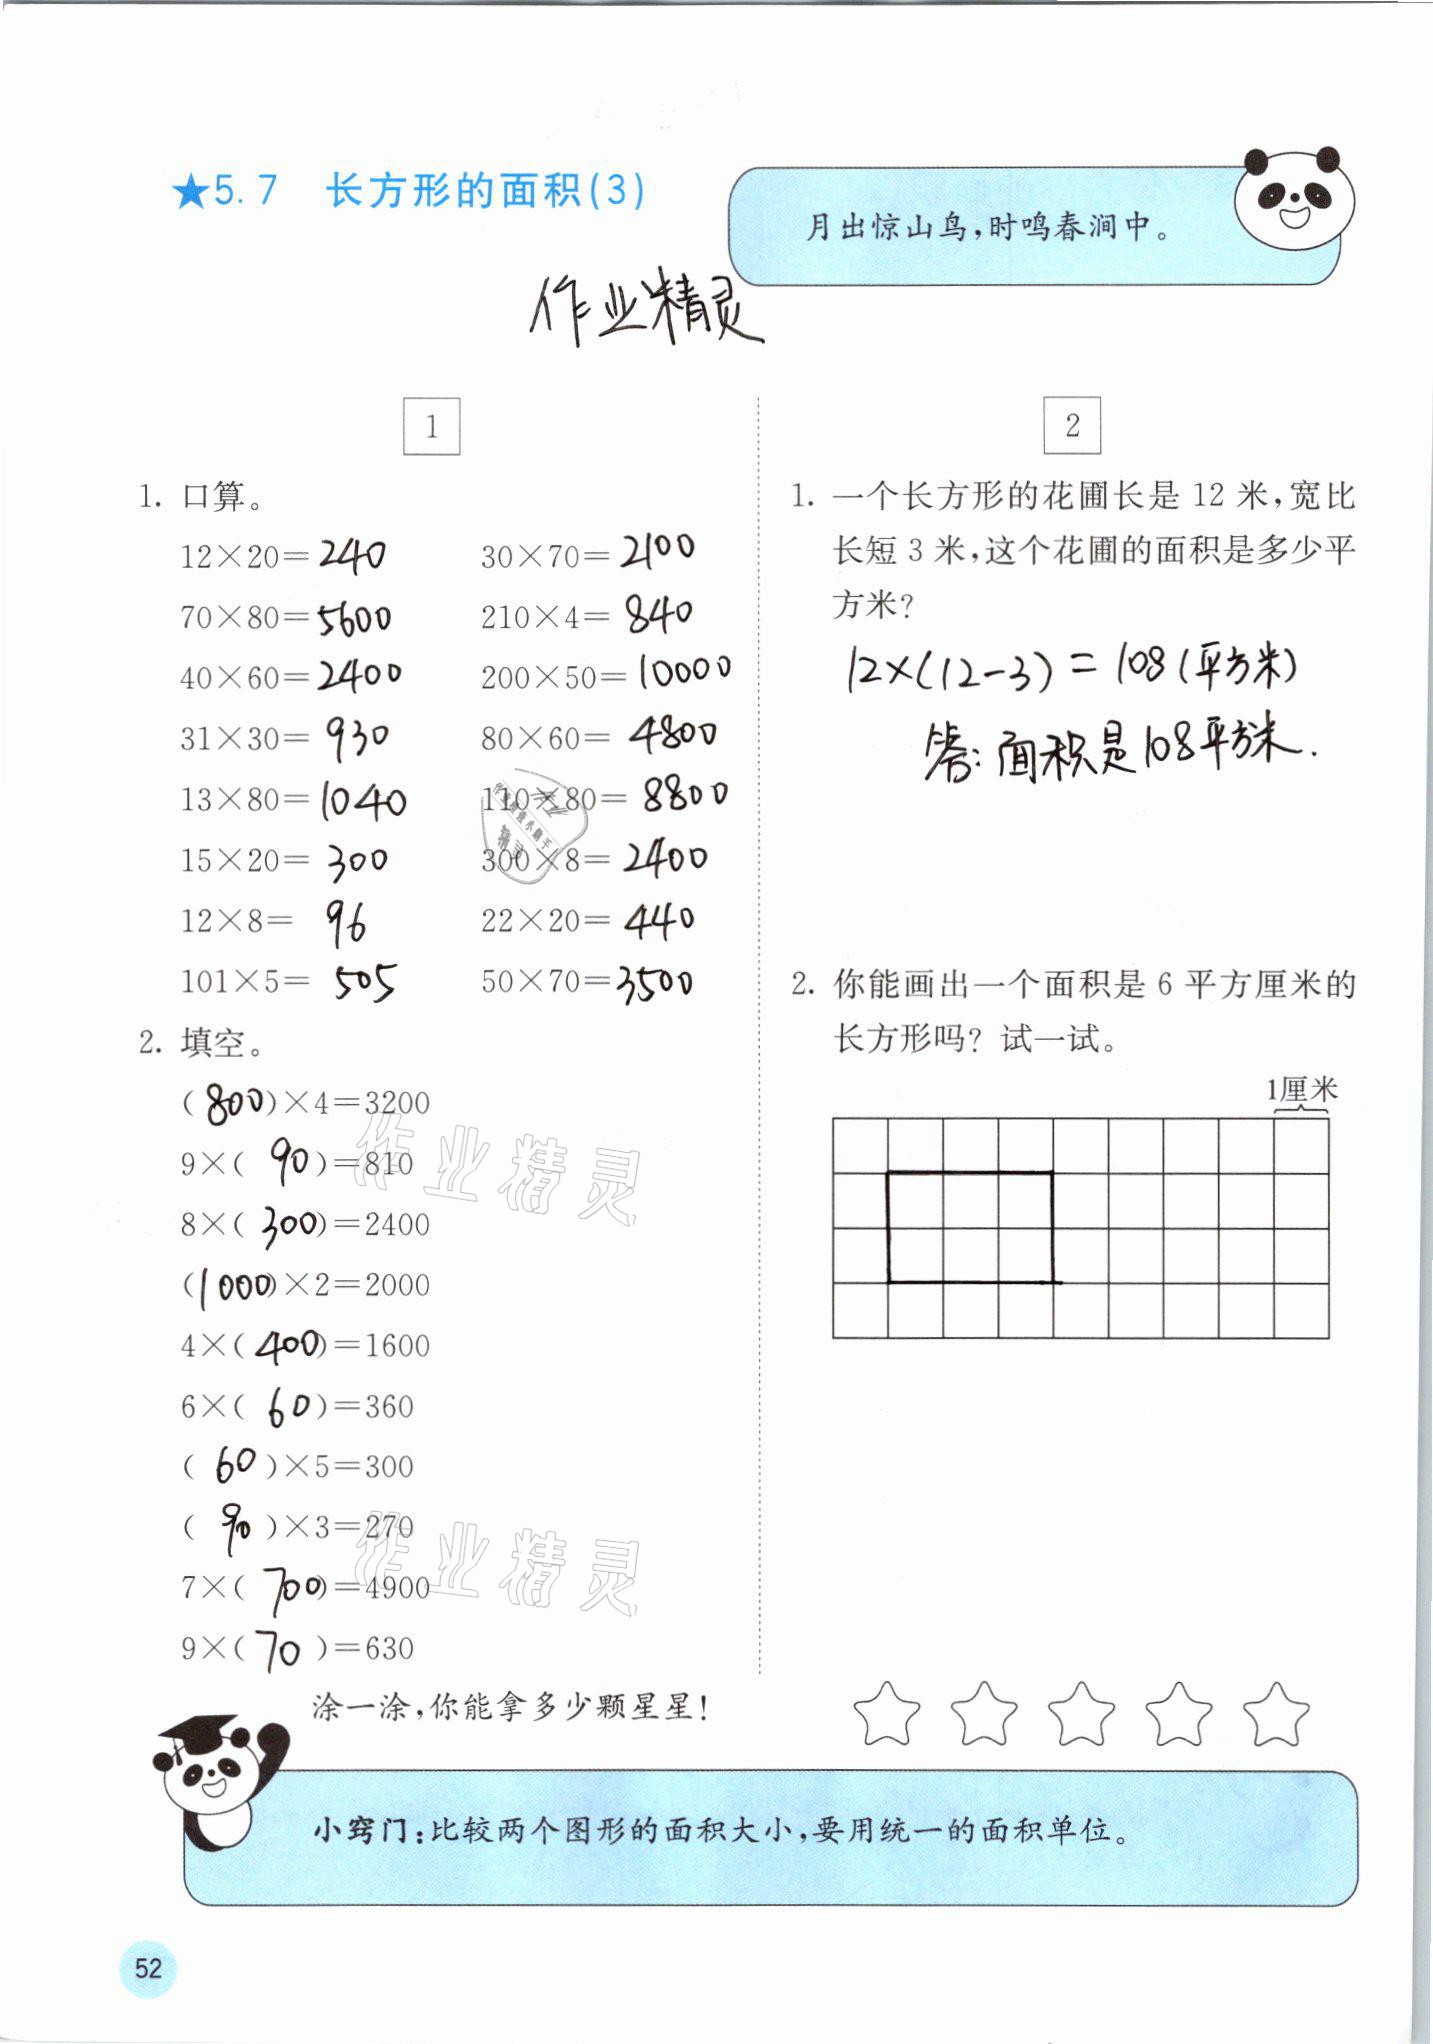 ★5.7 长方形的面积(3)
月出惊山鸟,时鸣春涧中。
作业精灵
1
1. 口算。
12×20=240 30×70=2100
70×80=5600 210×4=840
40×60=2400 200×50=10000
31×30=930 80×60=4800
13×80=1040 110×80=8800
15×20=300 300×8=2400
12×8=96 22×20=440
101×5=505 50×70=3500
2. 填空。
(800)×4=3200
9×(90)=810
8×(300)=2400
(1000)×2=2000
4×(400)=1600
6×(60)=360
(60)×5=300
(90)×3=270
7×(700)=4900
9×(70)=630
2
1. 一个长方形的花圃长是12米,宽比
长短3米,这个花圃的面积是多少平
方米?
12×(12-3)=108(平方米)
答:面积是108平方米.
2. 你能画出一个面积是6平方厘米的
长方形吗? 试一试。
1厘米
作业精灵
作业精灵
作业精灵
涂一涂,你能拿多少颗星星!
小窍门:比较两个图形的面积大小,要用统一的面积单位。
52